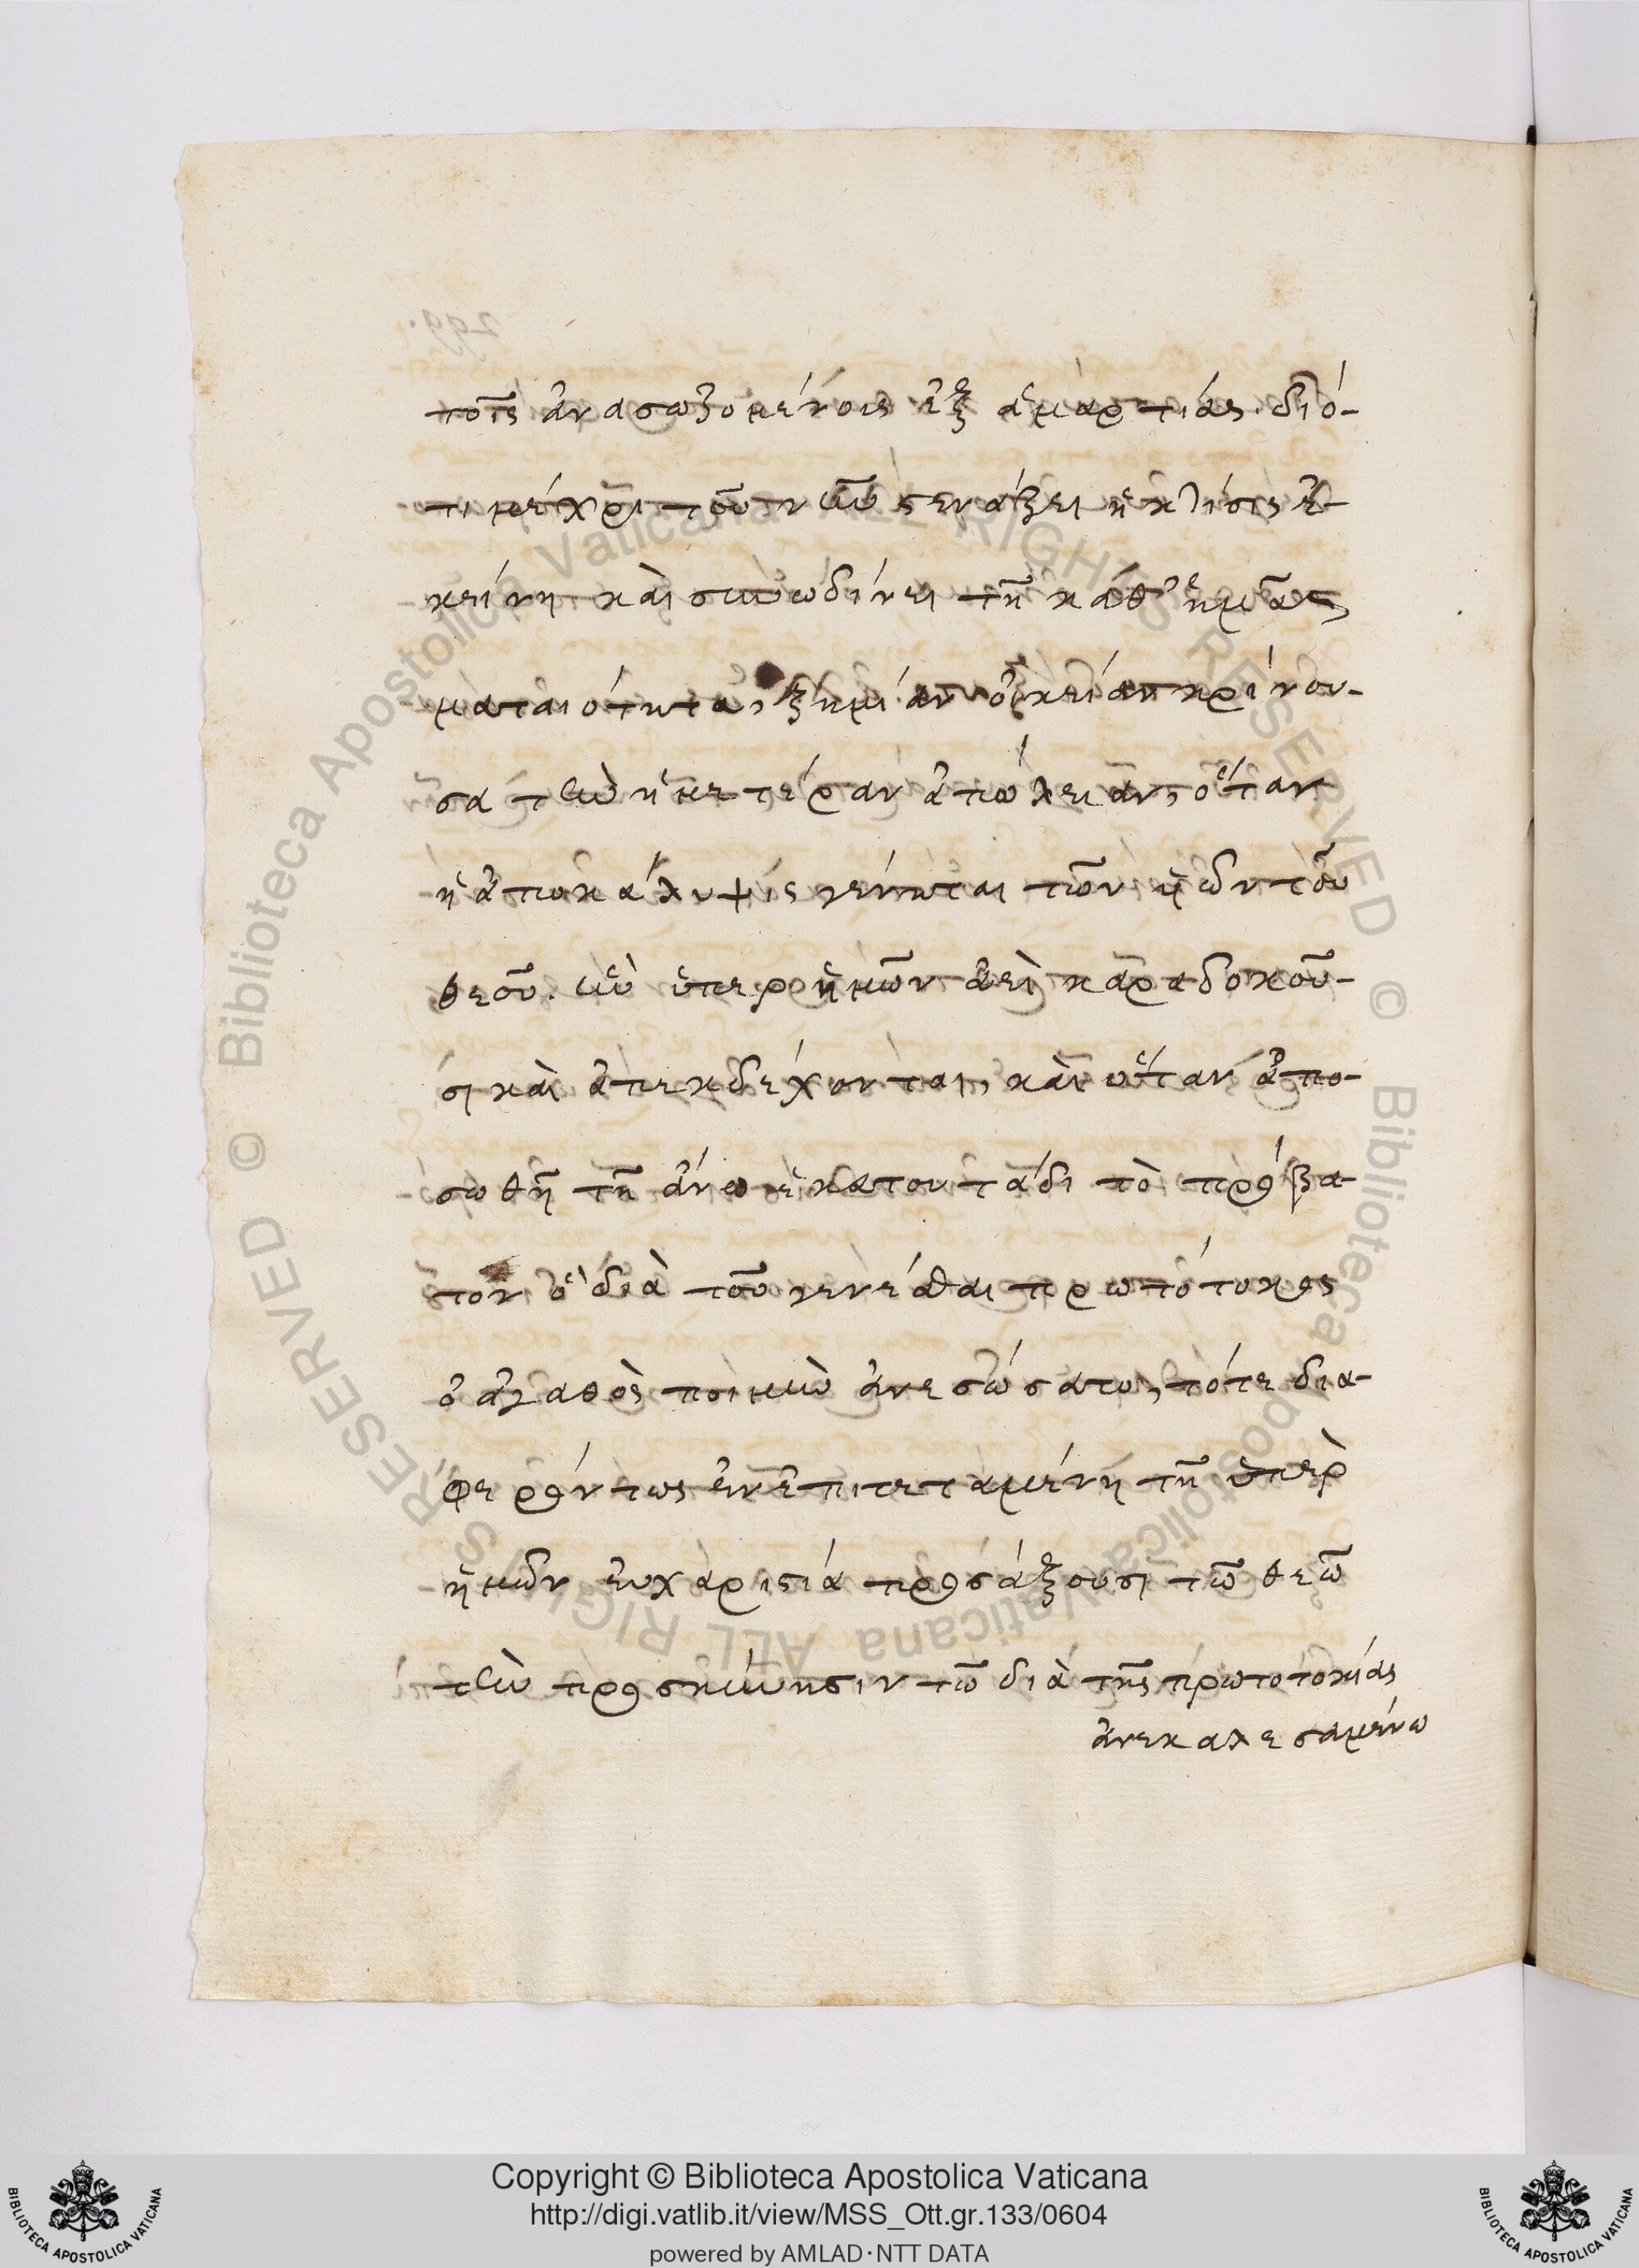 τοῖς ἀνασωζομένοις ἐξ ἁμαρτίας. διό-
τι μέχρι τοῦ νῦν στενάζει ἡ κλίσις ἐ-
κείνη καὶ συνωδίνει τῇ καθ' ἡμᾶς
ματαιότητα, ζημίαν οἰκείαν κρίνου-
σα τὴν ἡμετέραν ἀπώλειαν, ὅταν
ἡ ἀποκάλυψις γένηται τῶν ὑῶν τοῦ
θεοῦ. ἣν ὑπερ ἡμῶν ἀεὶ καραδοκοῦ-
σι καὶ ἀπεκδέχονται, καὶ ὅταν ἀπο-
σωθῇ τῇ ἄνω ἑκατοντάδι τὸ πρόβα-
τον ὃ διὰ τοῦ γενέσθαι πρωτότοκος
ὁ ἀγαθὸς ποιμὴν ἀνεσώσατο, τότε δια-
φερόντως ἐν ἐπιτεταμένη τῇ ὑπερ
ἡμῶν ἐυχαριστία προσάξουσι τῷ θεῷ
τὴν προσκύνησιν τῷ διὰ τῆς πρωτοτοκίας
ἀνεκαλεσαμένω
Copyright © Biblioteca Apostolica Vaticana
http://digi.vatlib.it/view/MSS_Ott.gr.133/0604
powered by AMLAD·NTT DATA
BIBLIOTECA APOSTOLICA VATICANA
BIBLIOTECA APOSTOLICA VATICANA
© Biblioteca Apostolica Vaticana ALL RIGHTS RESERVED © Biblioteca Apostolica Vaticana ALL RIGHTS RESERVED